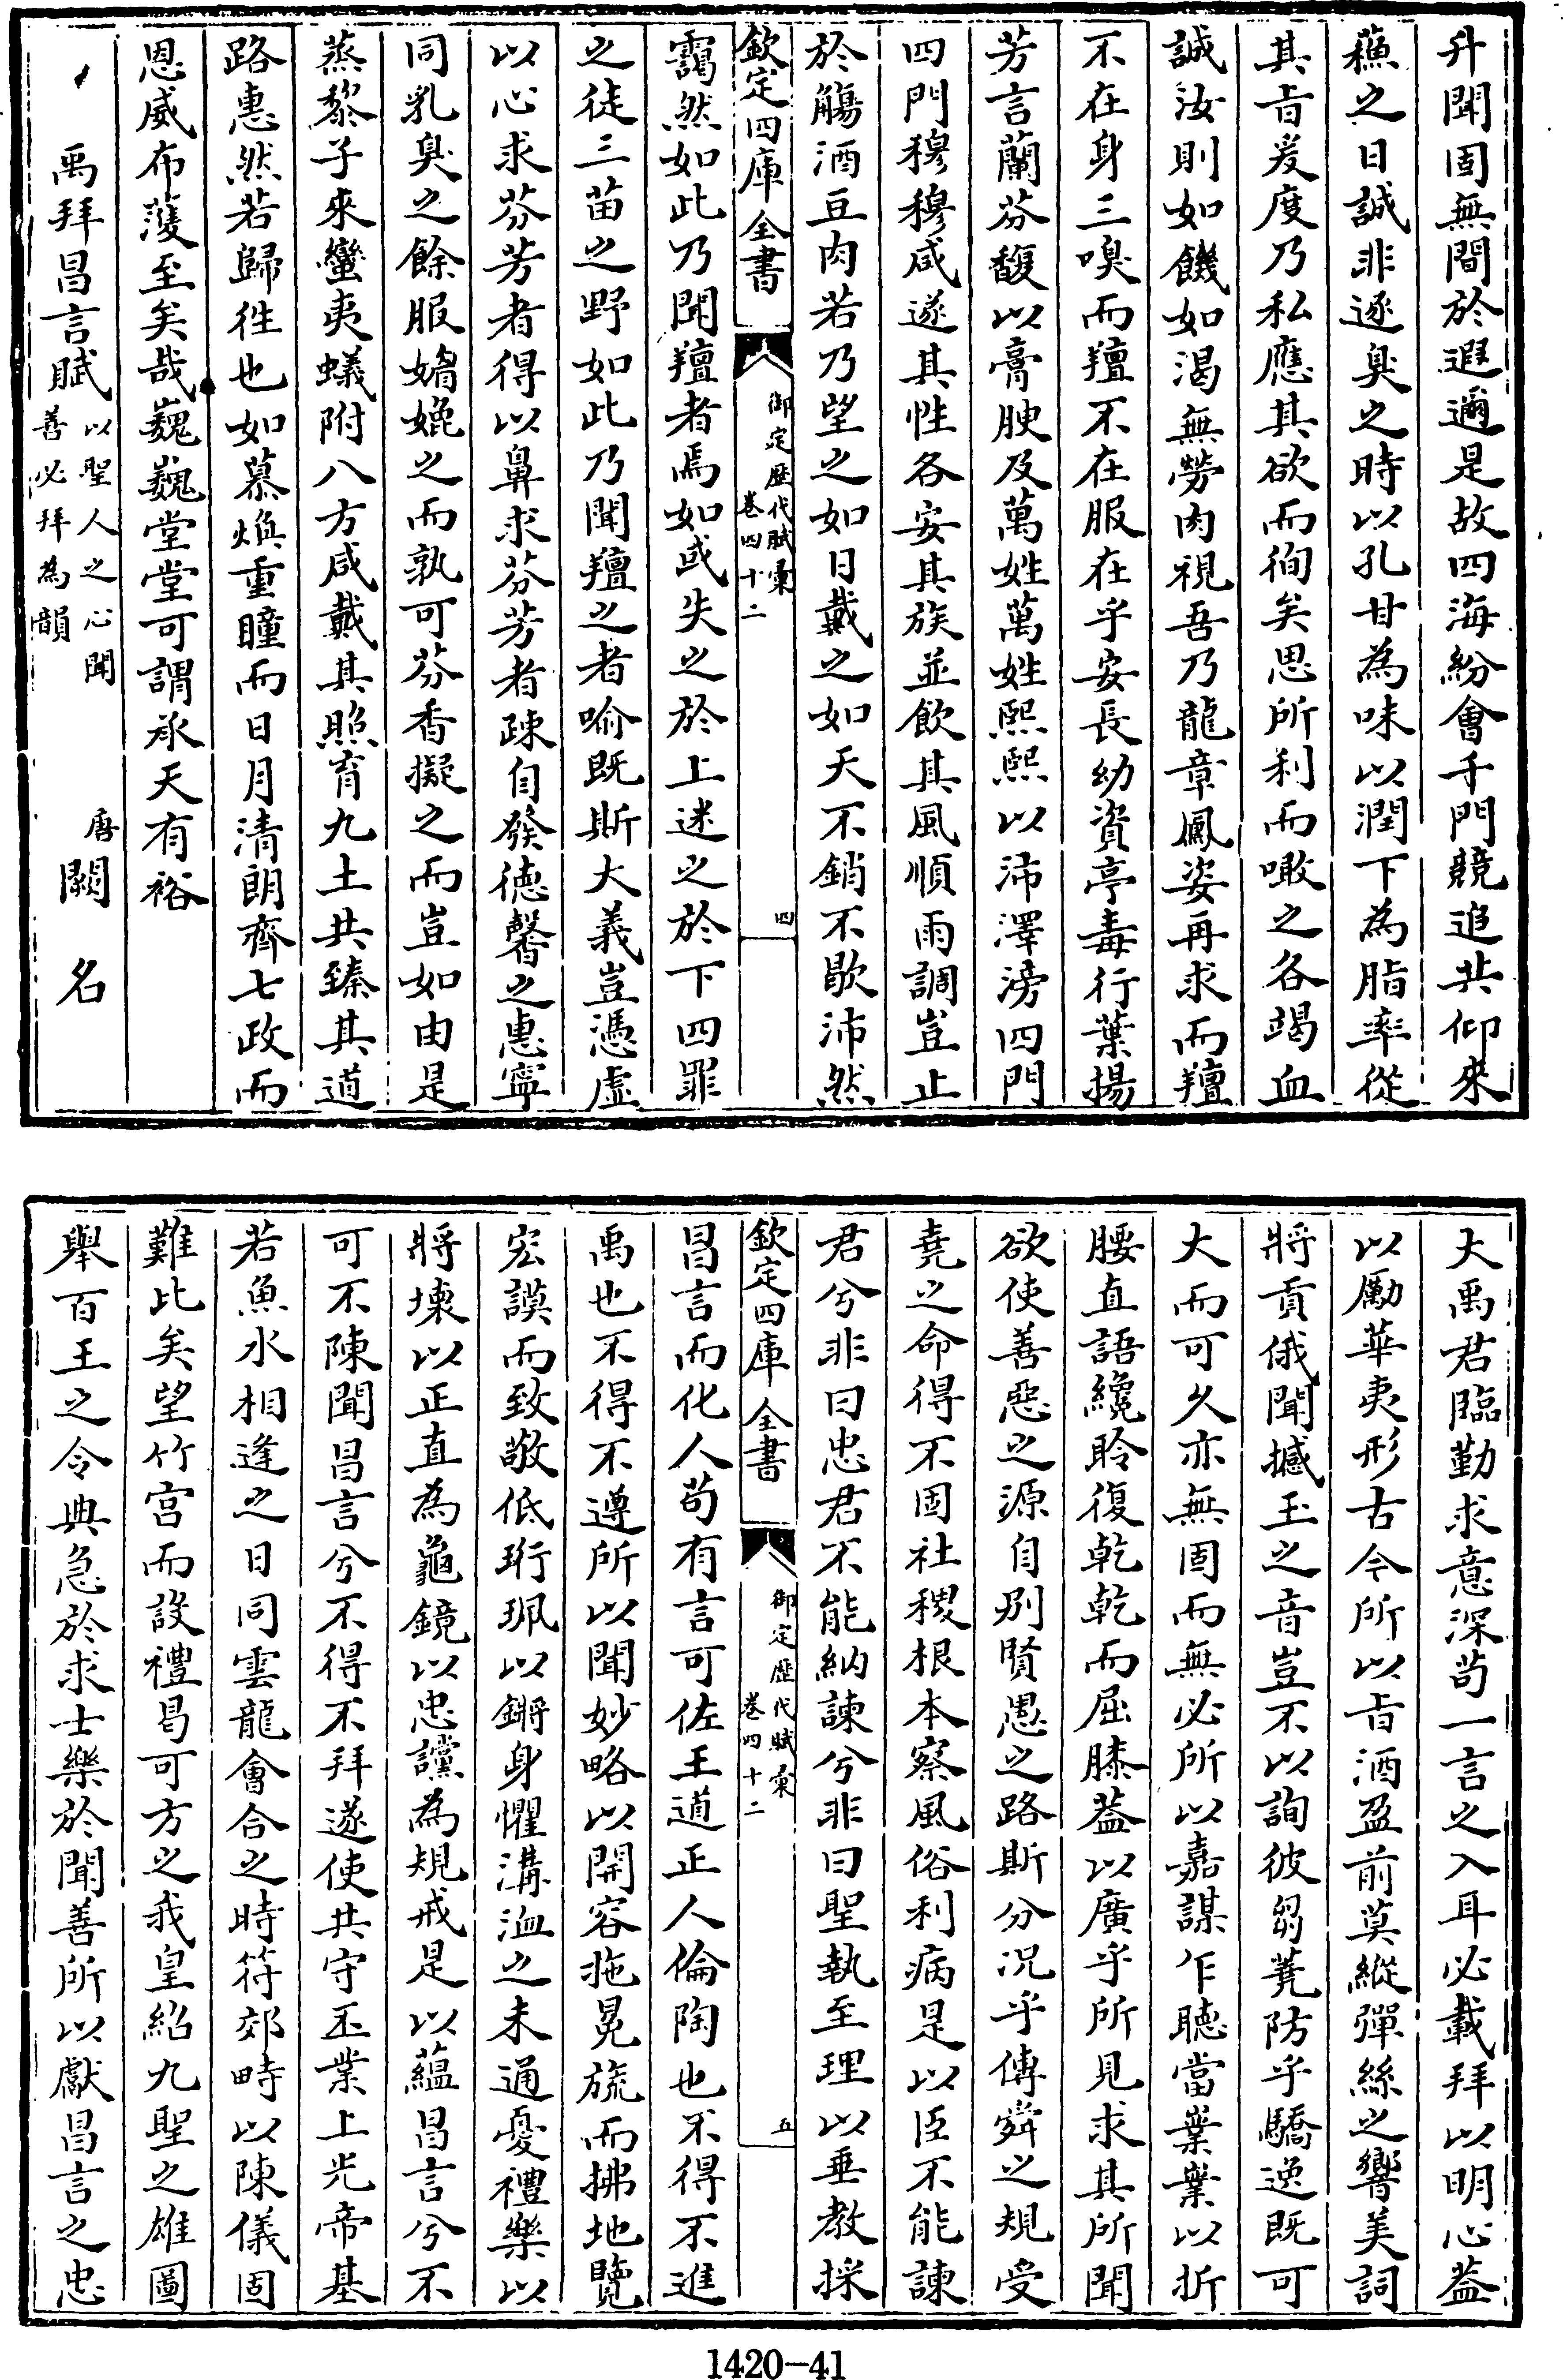 升聞固無間於遐邇是故四海紛會千門競追共仰來
蘓之日誠非逐臭之時以孔甘為味以潤下為脂率從
其㫖爰度乃私應其欲而徇矣思所利而噉之各竭血
誠汝則如饑如渴無勞肉視吾乃龍章鳳姿再求而羶
不在身三嗅而羶不在服在乎安長幼資亭毒行葉揚
芳言蘭芬馥以膏腴及萬姓萬姓熙熙以沛澤滂四門
四門穆穆咸遂其性各安其族並飲其風順雨調豈止
於觴酒豆肉若乃望之如日戴之如天不銷不歇沛然
欽定四庫全書
御定歷代賦彙
卷四十二
四
靄然如此乃聞羶者焉如或失之於上迷之於下四罪
之徒三苗之野如此乃聞羶之者喻既斯大義豈憑虛
以心求芬芳者得以鼻求芬芳者疎自發德馨之惠寧
同乳臭之餘服媚娩之而孰可芬香擬之而豈如由是
蒸黎子來蠻夷蟻附八方咸戴其照育九土共臻其道
路惠然若歸徃也如慕煥重瞳而日月清朗齊七政而
恩威布濩至矣哉巍巍堂堂可謂承天有裕
禹拜昌言賦以聖人之心聞善必拜為韻 唐闕名
大禹君臨勤求意深苟一言之入耳必載拜以明心葢
以勵華夷形古今所以㫖酒盈前莫縱彈絲之響美詞
將貢俄聞撼玉之音豈不以詢彼芻蕘防乎驕逸既可
大而可久亦無固而無必所以嘉謀乍聴當業業以折
腰直語纔聆復乾乾而屈膝葢以廣乎所見求其所聞
欲使善惡之源自別賢愚之路斯分況乎傳舜之規受
堯之命得不固社稷根本察風俗利病是以臣不能諫
君兮非曰忠君不能納諫兮非曰聖執至理以垂教採
欽定四庫全書
御定歷代賦彙
卷四十二
五
昌言而化人苟有言可佐王道正人倫陶也不得不進
禹也不得不遵所以聞妙略以開容拖冕旒而拂地覽
宏謨而致敬低珩珮以鏘身懼溝洫之未通憂禮樂以
將壊以正直為龜鏡以忠讜為規戒是以藴昌言兮不
可不陳聞昌言兮不得不拜遂使共守丕業上光帝基
若魚水相逢之日同雲龍會合之時符郊畤以陳儀固
難此矣望竹宮而設禮曷可方之我皇紹九聖之雄圖
舉百王之令典急於求士樂於聞善所以獻昌言之忠
1420-41